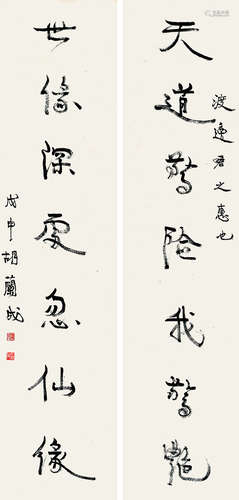 天道驚險我驚艷
波逸君之惠也
世緣深處忽仙緣
戊申 胡蘭成